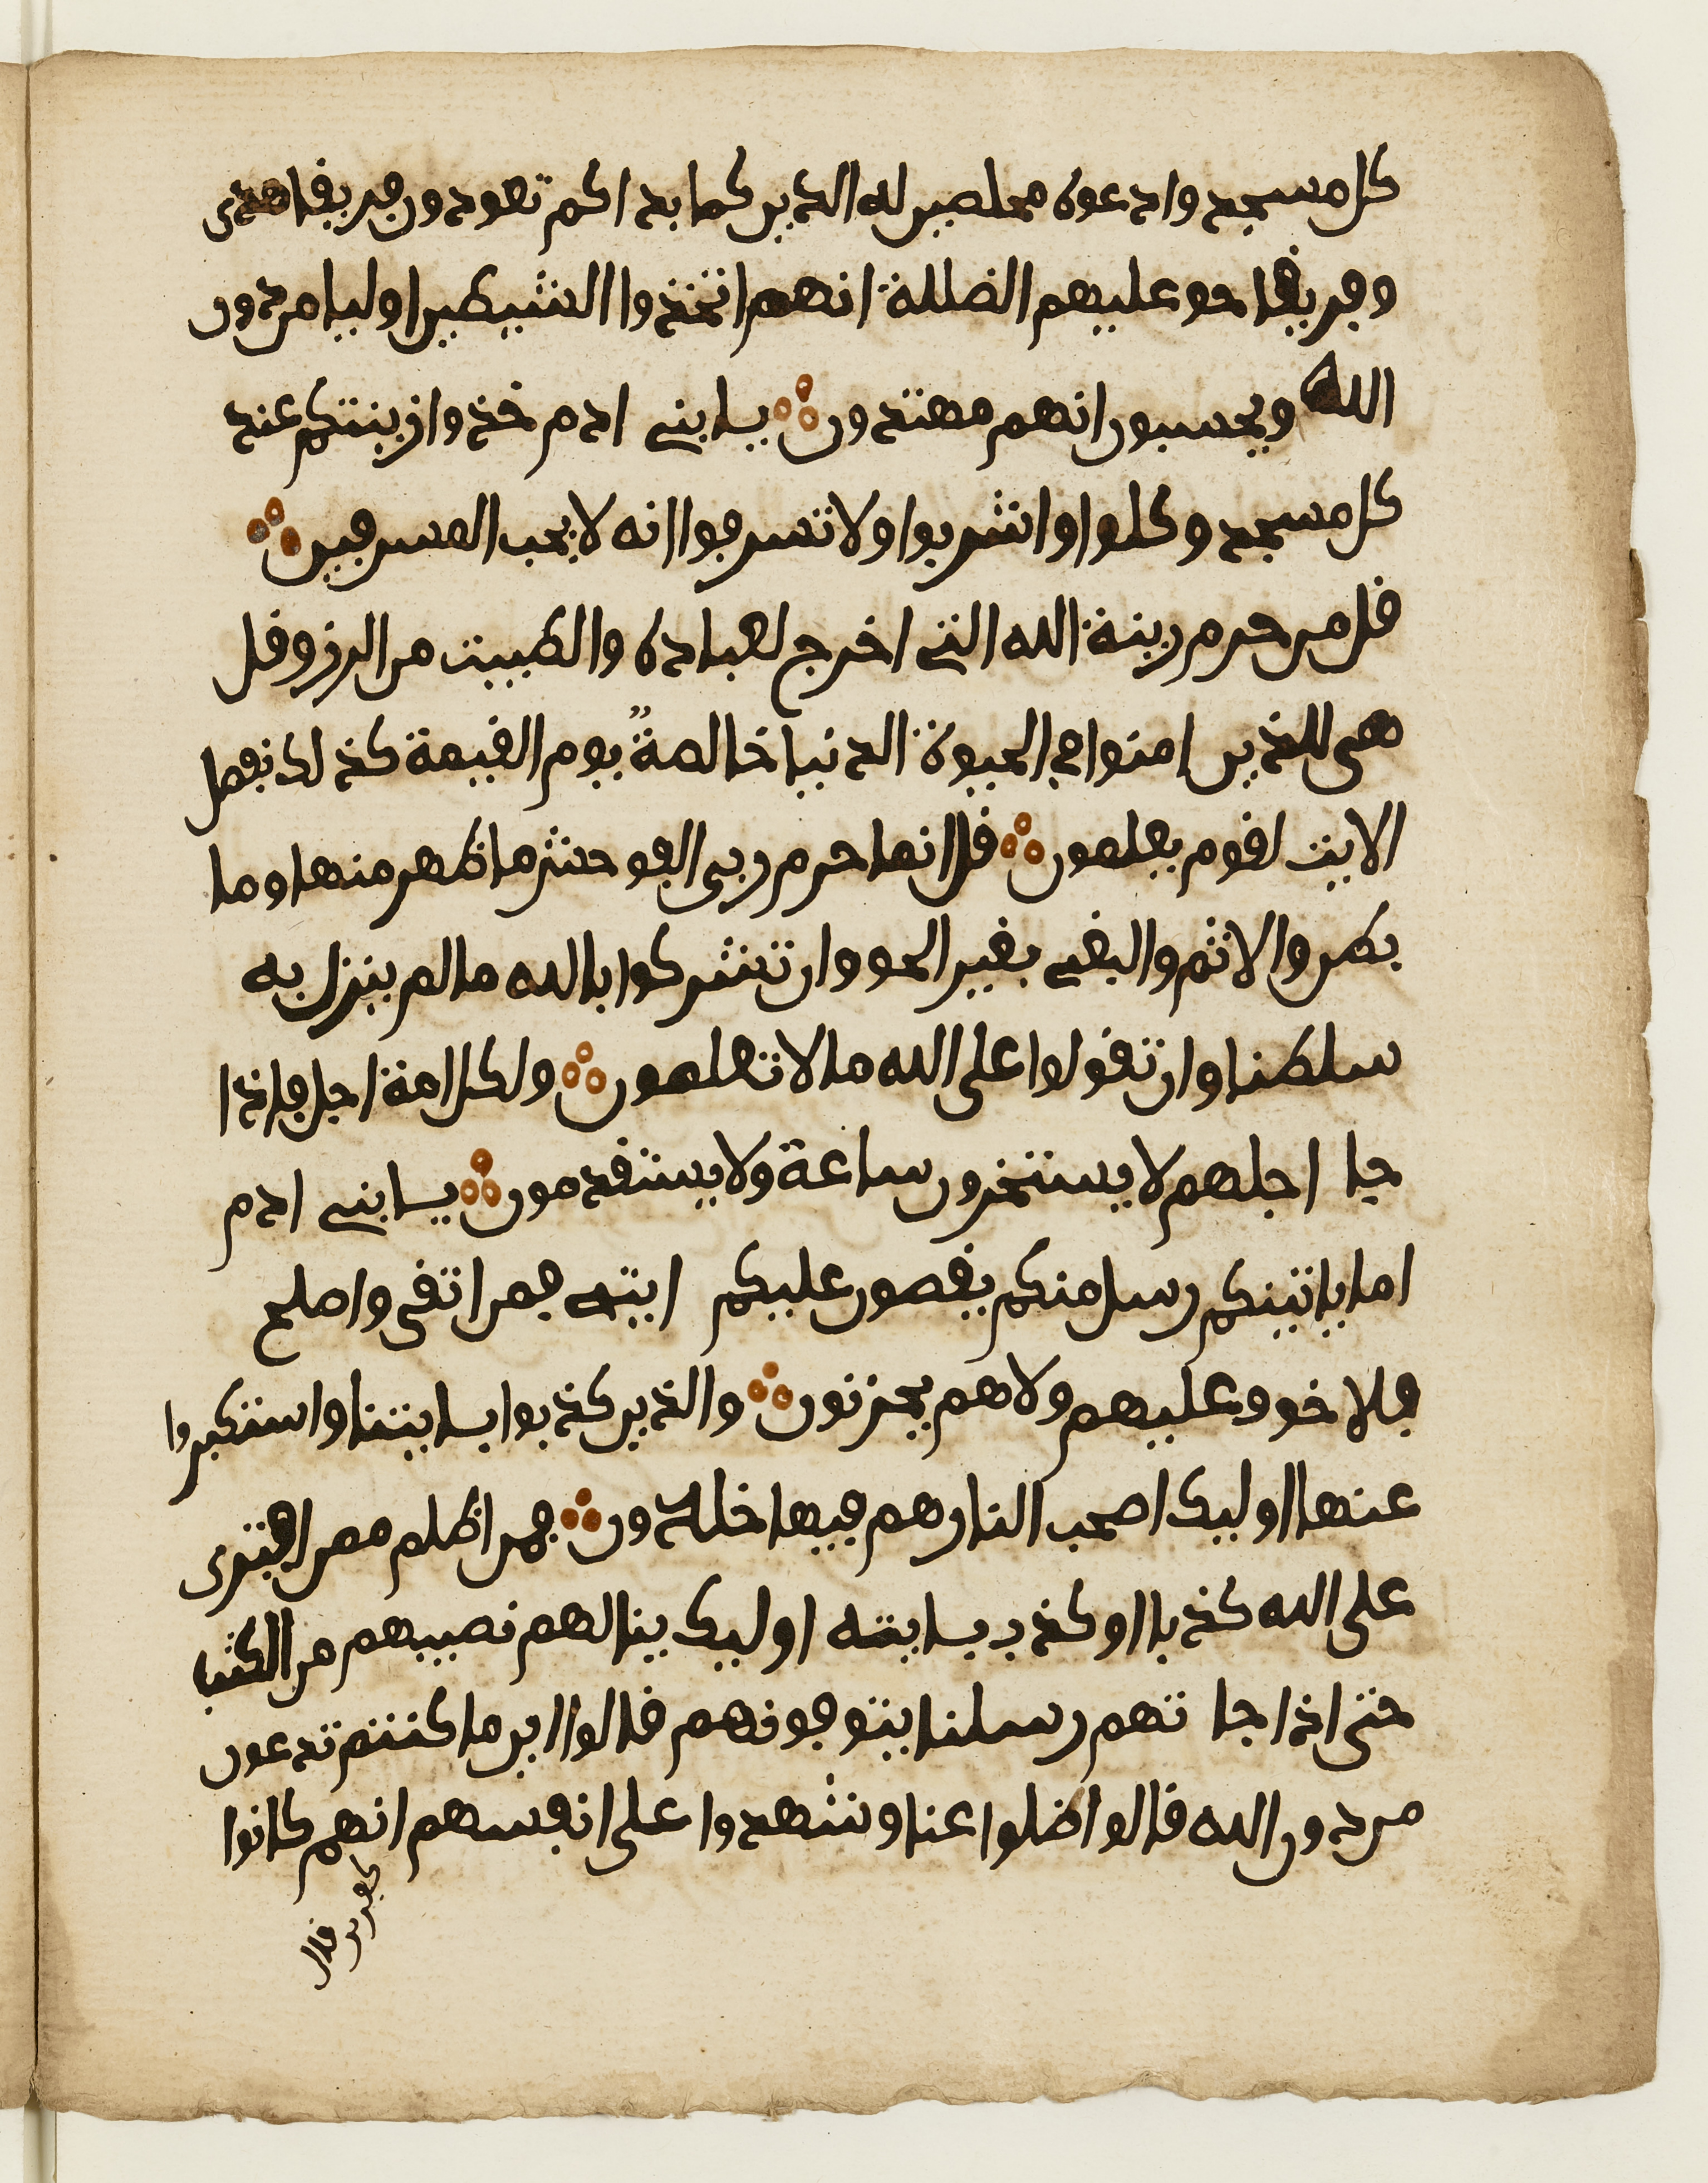 كل مسجد وادعوه مخلصين له الدين كما بداكم تعودون فريقا هدى
وفريقا حق عليهم الضللة انهم اتخذوا الشيطين اوليا من دون
الله ويحسبون انهم مهتدون يابني ادم خذوا زينتكم عند
كل مسجد وكلوا واشربوا ولا تسرفوا انه لا يحب المسرفين
قل من حرم زينة الله التي اخرج لعباده والطيبت من الرزق قل
هي للذين امنوا في الحيوة الدنيا خالصة يوم القيمة كذلك نفصل
الايت لقوم يعلمون قل انما حرم ربي الفوحش ما ظهر منها وما
بطن والاثم والبغي بغير الحق وان تشركوا بالله ما لم ينزل به
سلطنا وان تقولوا على الله ما لا تعلمون ولكل امة اجل فاذا
جا اجلهم لا يستخرون ساعة ولا يستقدمون يابني ادم
اما ياتينكم رسل منكم يقصون عليكم ايتي فمن اتقى واصلح
فلا خوف عليهم ولا هم يحزنون والذين كذبوا بايتنا واستكبروا
عنها اوليك اصحب النار هم فيها خلدون فمن اظلم ممن افترى
على الله كذبا او كذب بايته اوليك ينالهم نصيبهم من الكتب
حتى اذا جا تهم رسلنا يتوفونهم قالوا اين ما كنتم تدعون
من دون الله قالوا ضلوا عنا وشهدوا على انفسهم انهم كانوا
كفرين قال